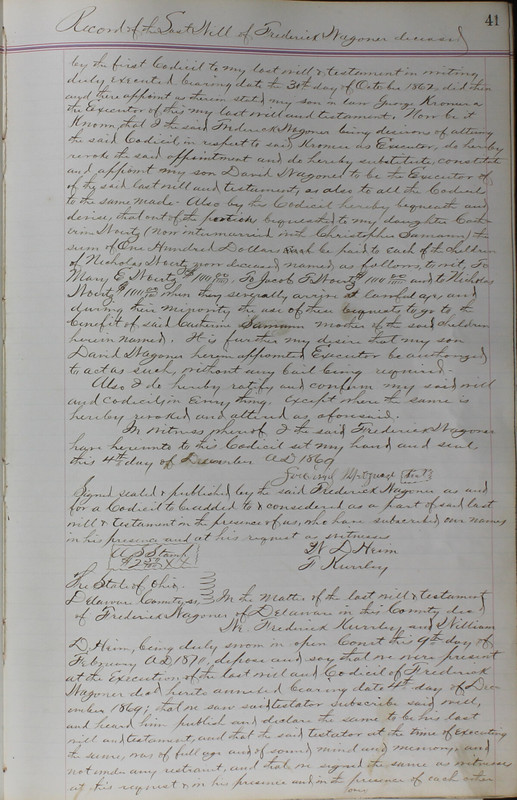 41
Record of the Last Will of Frederick Wagoner deceased
by the first Codicil to my last will & testament in writing
duly executed bearing date the 30th day of October 1862, did then
and there appoint as therein stated my son in law George Kromer a
the Executor of this my last will and testament. Now be it
Known, that I the said Frederick Wagoner being desirous of altering
the said Codicil in respect to said Kromer as Executor, do hereby
revoke the said appointment and do hereby substitute, constitute
and appoint my son David Wagoner to be the Executor of
of my said last will and testament, as also to all the Codicils
to the same made. Also by this Codicil hereby bequeath and
devise, that out of the portion bequeathed to my daughter Cath-
erine Wourtz (now intermarried with Christopher) the
sum of One Hundred Dollars each be paid to each of the children
of Nicholas Wourtz now deceased, named as follows, to wit, To
Mary E Wourtz $100 00/100, To Jacob F Wourtz $100 00/100 and to Nicholas
Wourtz $100 00/100 when they severally arrive at lawful age, and
during their minority the use of these bequests to go to the
benefit of said mother of the said children
herein named. It is further my desire that my son
David Wagoner herein appointed Executor be authorized
to act as such, without any bail being required.
Also I do hereby ratify and confirm my said will
and codicils in Every thing, except where the same is
hereby revoked and altered as, aforesaid.
In witness whereof I the said Frederick Wagoner
have hereunto to this Codicil set my hand and seal
this 4th day of December AD 1869
Signed sealed & published by the said Frederick Wagoner as and
for a Codicil to be added to & considered as a part of said last
will & testament in the presence of us, who have subscribed our names
in his presence and at his request as witnesses
W D Heim
F Kurrley
U S Stamp
The State of Ohio
Delaware County ss, In the Matter of the last will & testament
of Frederick Wagoner of Delaware in this County decd
We, Frederick Kurrley and William
D Heim, being duly sworn in open Court this 9th day of
February AD 1870, depose and say that we were present
at the Execution of the last will and Codicil of Frederick
Wagoner decd hereto annexed bearing date 4th day of Dec-
ember 1869; that we saw said testator subscribe said will,
and heard him publish and declare the same to be his last
will and testament, and that the said testator at the time of executing
the same, was of full age and of sound mind and memory and
not under any restraint, and that we signed the same as witnesses
at his request & in his presence and in the presence of each other